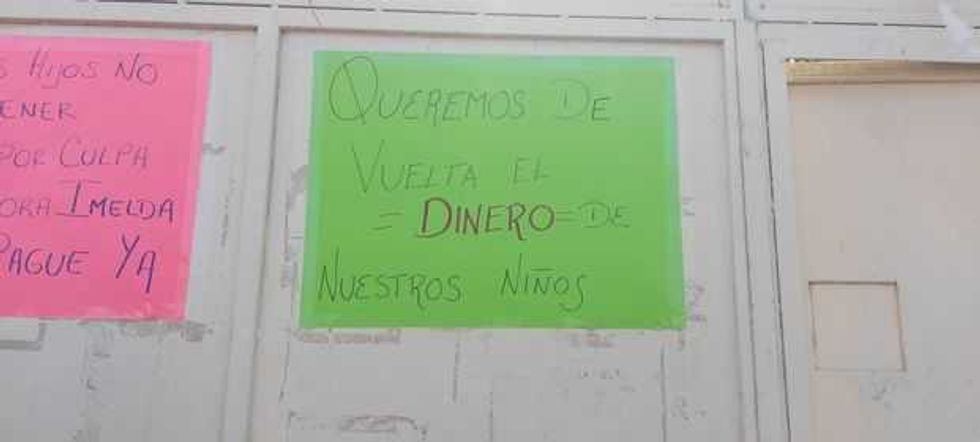 S HIJOS NO
ENER
POR CULPA
ORA IMELDA
PAGUE YA
QUEREMOS DE
VUELTA EL
= DINERO = DE
NUESTROS NIÑOS